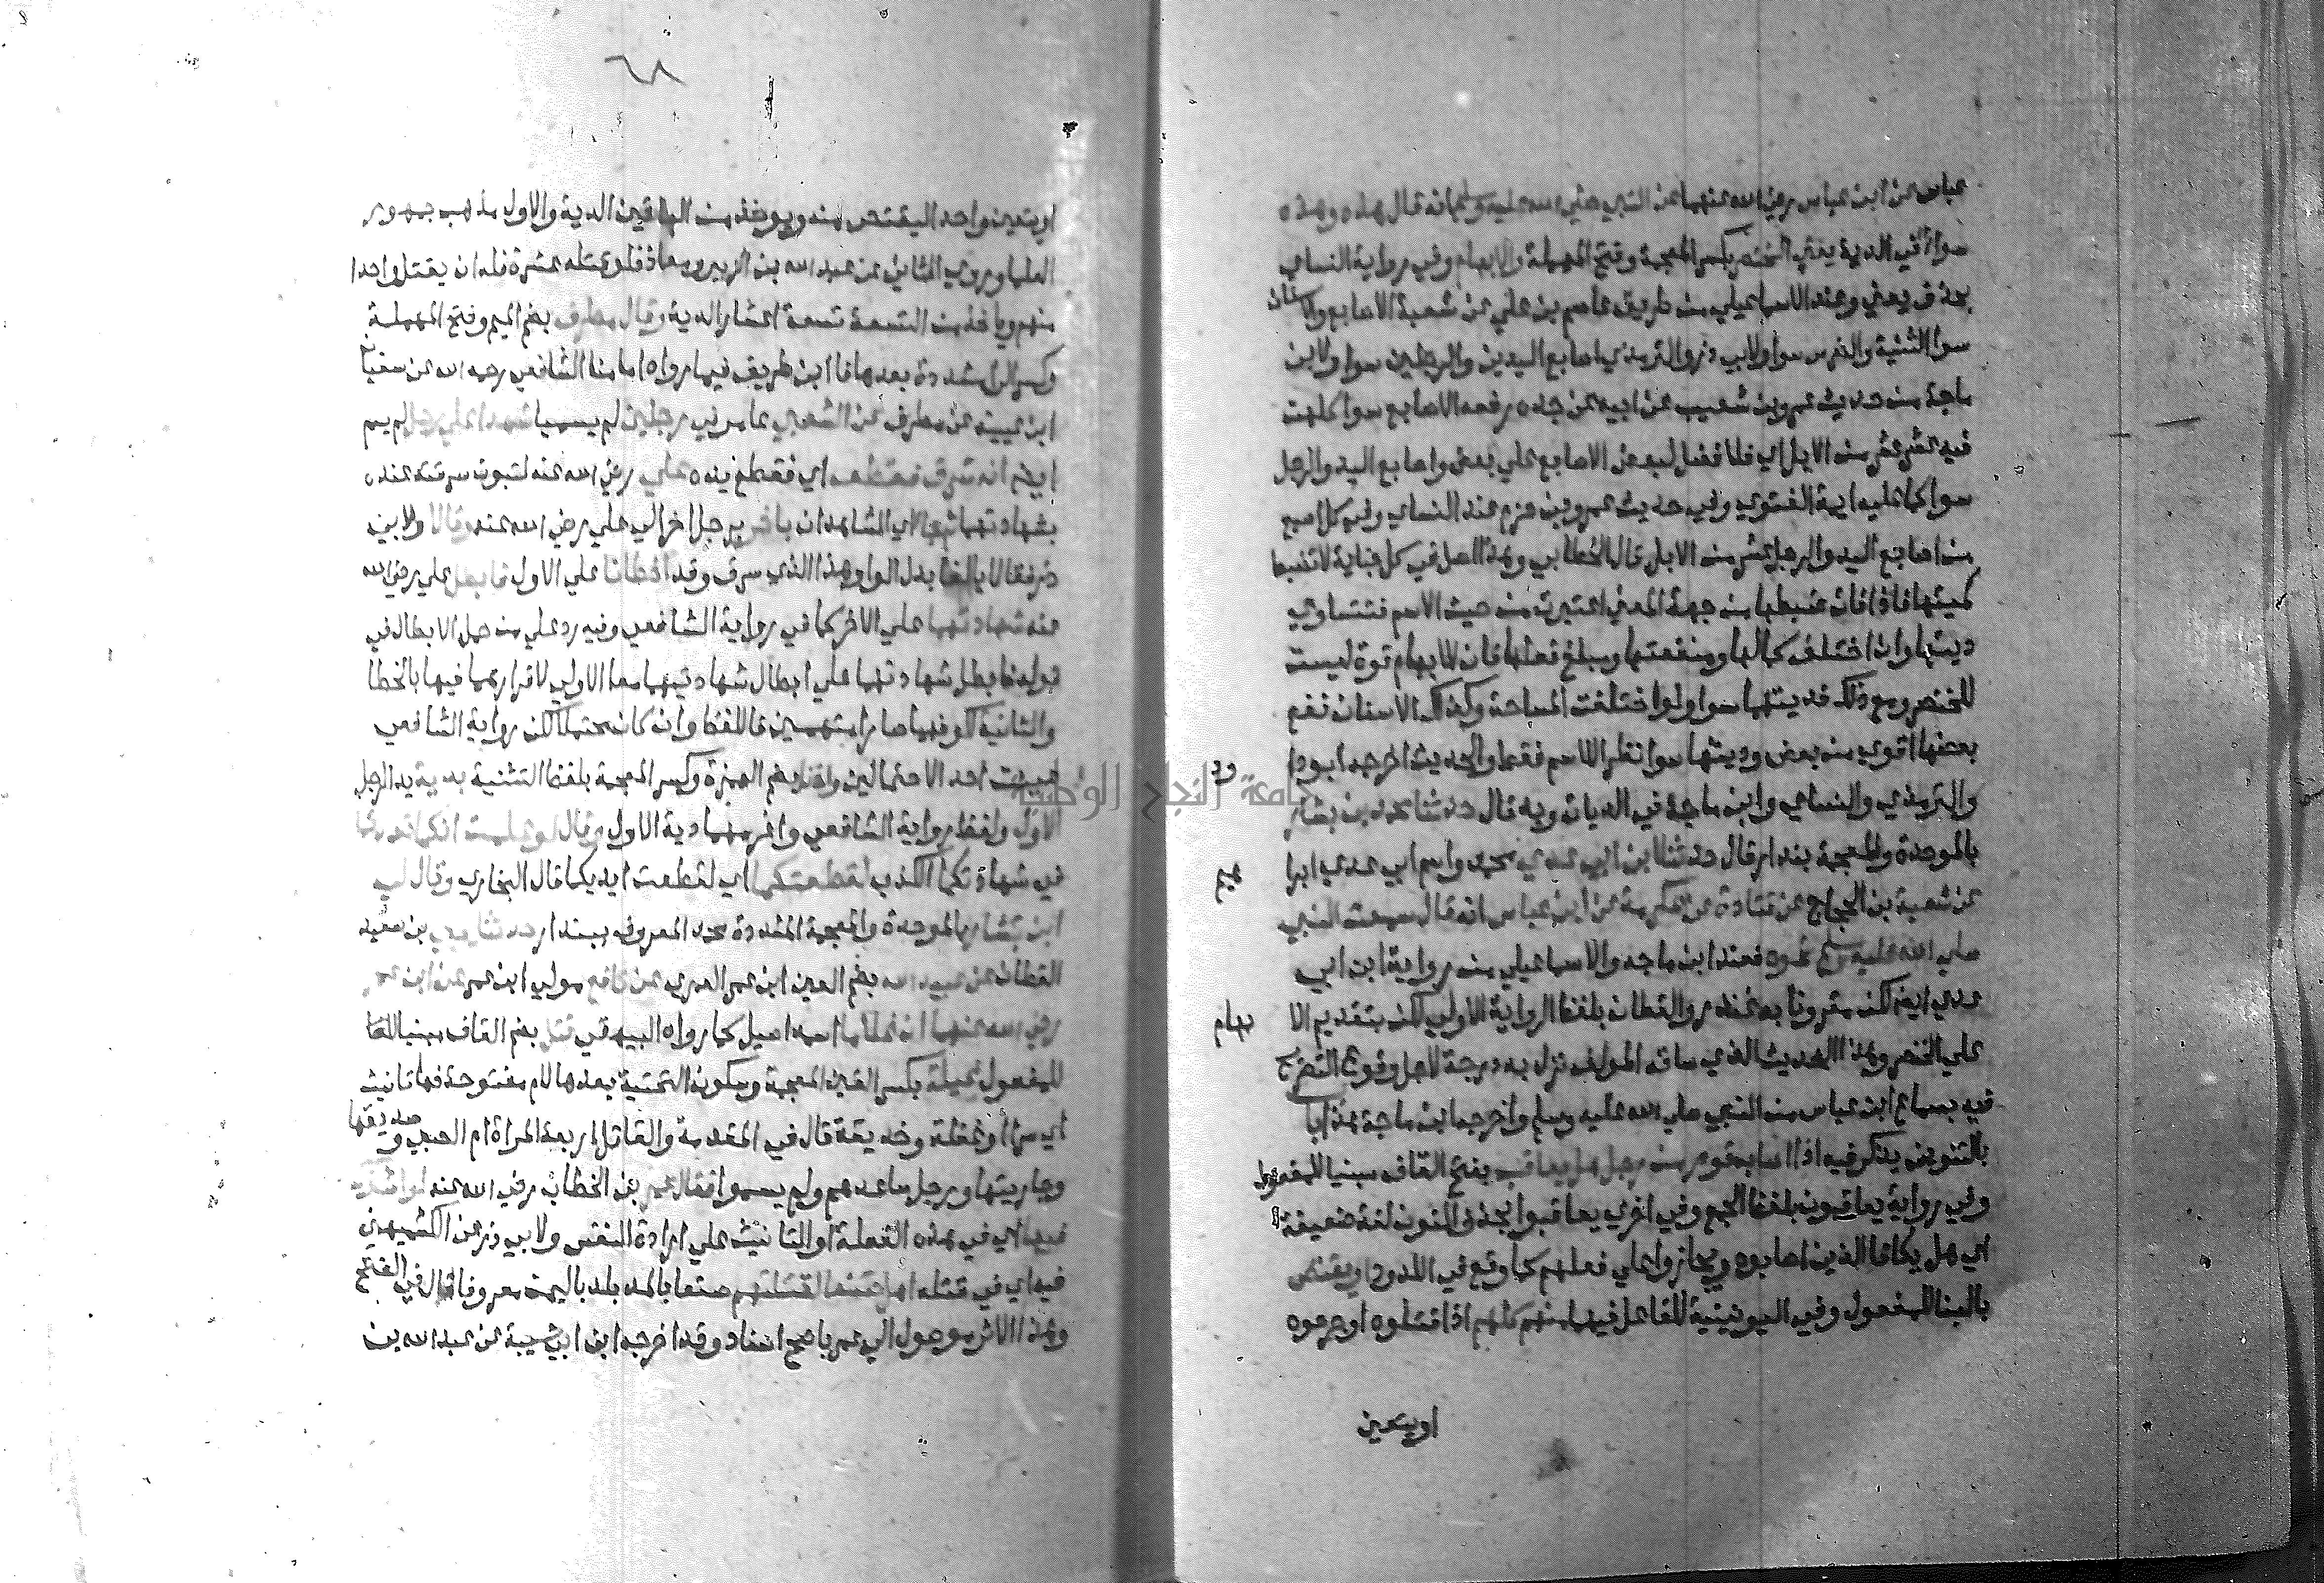 عباس عن ابن عباس رضي الله عنهما عن النبي صلي الله عليه وسلم انه قال هذه وهذه
سوا اي في الدية يعني الخنصر بكسر المعجمة وفتح المهملة والابهام وفي رواية النساي
بحذف يعني وعند الاسماعيلي من طريق عاصم بن علي عن شعبة الاصابع والاسنان
سوا الثنية والضرس سوا ولابي داود والترمذي اصابع اليدين والرجلين سوا ولابن
ماجة من حديث عمرو بن شعيب عن ابيه عن جده رفعه الاصابع سوا كلهن
فيه عشر عشر من الابل اي فلا فضل لبعض الاصابع علي بعض واصابع اليد والرجل
سوا كما عليه ايمة الفتوي وفي حديث عمرو بن حزم عند النساي وفي كل اصبع
من اصابع اليد والرجل عشر من الابل قال الخطابي وهذا اصل في كل جناية لا تضبط
كميتها فاذا فات ضبطها من جهة المعني اعتبرت من حيث الاسم فتتساوي
ديتها وان اختلف كمالها ومنفعتها ومبلغ فعلها فان للابهام قوة ليست
للخنصر ومع ذلك فديتهما سوا ولو اختلفت المساحة وكذلك الاسنان نفع
بعضها اقوي من بعض وديتها سوا نظرا للاسم فقط والحديث اخرجه ابو داود
والترمذي والنساي وابن ماجة في الديات وبه قال حدثنا محمد بن بشار
بالموحدة والمعجمة بندار قال حدثنا ابن ابي عدي محمد واسم ابي عدي ابراهيم
عن شعبة بن الحجاج عن قتادة عن عكرمة عن ابن عباس انه قال سمعت النبي
صلي الله عليه وسلم نحوه فعند ابن ماجه والاسماعيلي من رواية ابن ابي
عدي ايضا لكن مقرونا به غندر والقطان بلفظ الرواية الاولي لكن بتقديم الابهام
علي الخنصر وهذا الحديث الذي ساقه المولف نزل به درجة لاجل وقوع التصريح
فيه بسماع ابن عباس من النبي صلي الله عليه وسلم واخرجه ابن ماجة هذا باب
بالتنوين يذكر فيه اذا اصاب قوم من رجل هل يعاقب بفتح القاف مبنيا للمفعول
وفي رواية يعاقبون بلفظ الجمع وفي اخري يعاقبوا بحذف النون لغة ضعيفة
اي هل يكافا الذين اصابوه ويجازوا علي فعلهم كما وقع في اللدود او يقتص
بالبنا للمفعول وفي اليونينية للفاعل فيهما منهم كلهم اذا قتلوه او جرحوه
او يتعين
٦٨
او يتعين واحد اليقتص منه ويوخذ من الباقين الدية والاول مذهب جمهور
العلما وروي الثاني عن عبد الله بن الزبير ومعاذ فلو قتله عشرة فله ان يقتل واحدا
منهم وياخذ من التسعة تسعة اعشار الدية وقال مطرف بضم الميم وفتح المهملة
وكسر الرا مشددة بعدها فا ابن طريف فيما رواه امامنا الشافعي رحمه الله عن سفيان
ابن عيينة عن مطرف عن الشعبي عامر في رجلين لم يسميا شهدا علي رجل لم يسم
ايضا انه سرق فقطعه اي فقطع يده علي رضي الله عنه لثبوت سرقته عنده
بشهادتهما ثم جا اي الشاهدان باخر برجل اخر الي علي رضي الله عنه وقالا ولابي
ذر فقالا بالفا بدل الواو هذا الذي سرق وقد اخطانا علي الاول فابطل علي رضي الله
عنه شهادتهما علي الاخر كما في رواية الشافعي وفيه رد علي من حمل الابطال في
قوله فابطل شهادتهما علي ابطال شهادتيهما معا الاولي لاقرارهما فيها بالخطا
والثانية لكونهما صارا متهمين فاللفظ وان كان محتملا لكن رواية الشافعي
عينت احد الاحتمالين واخذا بضم الهمزة وكسر المعجمة بلفظ التثنية بدية يد الرجل
الاول ولفظ رواية الشافعي واغرمهما دية الاول وقال لو علمت انكما تعمدتما
في شهادتكما الكذب لقطعتكما اي لقطعت ايديكما قال البخاري وقال لي
ابن بشار بالموحدة والمعجمة المشددة محمد المعروف ببندار حدثنا يحيي بن سعيد
القطان عن عبيد الله بضم العين ابن عمر العمري عن نافع مولي ابن عمر عن ابن عمر
رضي الله عنهما ان غلاما اسمه اصيل كما رواه البيهقي قتل بضم القاف مبنيا
للمفعول غيلة بكسر الغين المعجمة وسكون التحتية بعدها لام مفتوحة فها تانيث
اي سرا او غفلة وخديعة قال في المقدمة والقاتل اربعة المراة ام الصبي وصديقها
وجاريتها ورجل ساعدهم ولم يسموا فقال عمر بن الخطاب رضي الله عنه لو اشترك
فيها اي في هذه الفعلة او التانيث علي ارادة النفس ولابي ذر عن الكشميهني
فيه اي في قتله اهل صنعا لقتلتهم صنعا بالمد بلد باليمن معروفا قال في الفتح
وهذا الاثر موصول الي عمر باصح اسناد وقد اخرجه ابن ابي شيبة عن عبد الله بن
جامعة النجاح الوطنية